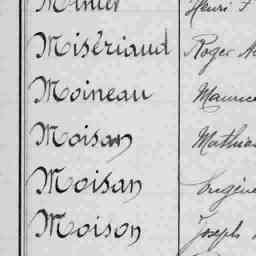 Minier Henri F
Misériaud Roger A
Moineau Maurice
Moisan Mathia
Moisan Eugène
Moison Joseph